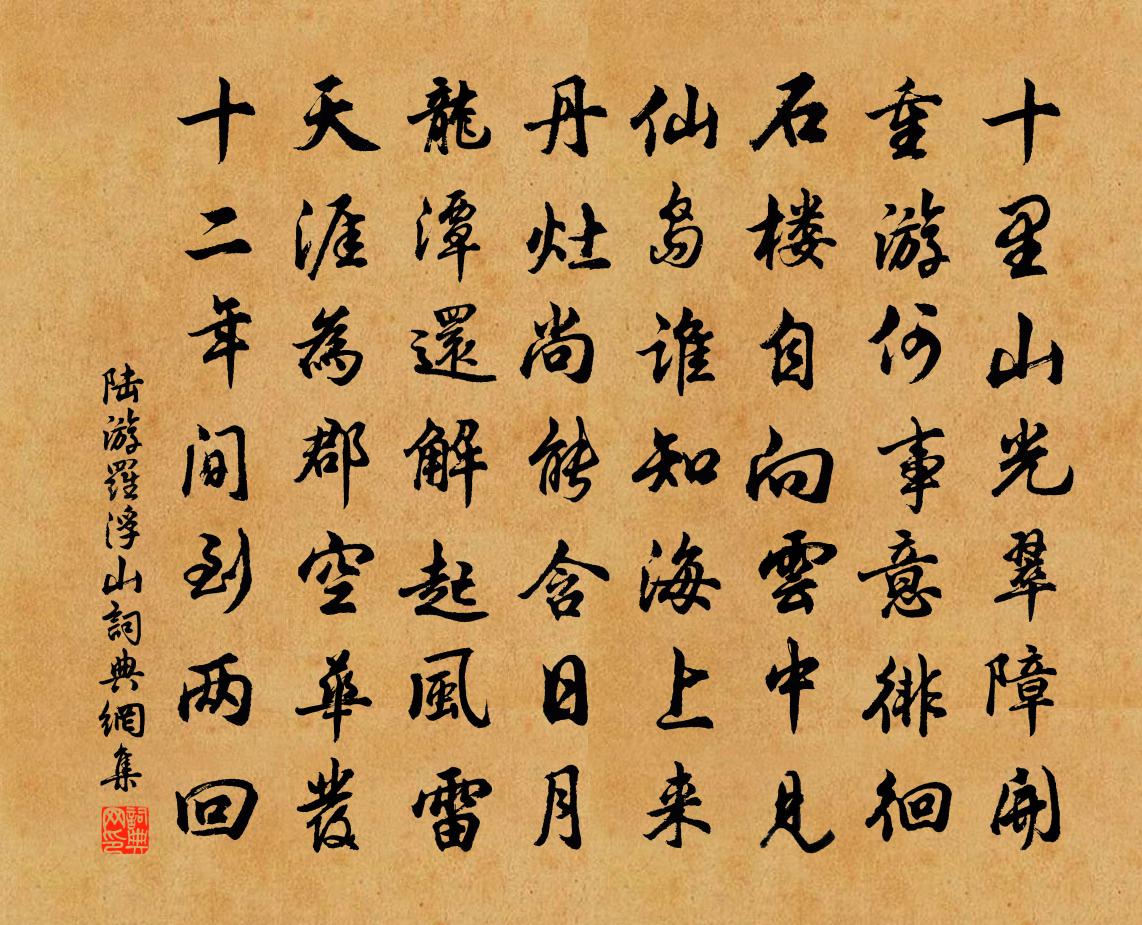 十里山光翠障開
重游何事意徘徊
石楼自向雲中見
仙島誰知海上来
丹灶尚能含日月
龍潭還解起風雷
天涯為郡空華發
十二年間到两回
陸游羅浮山詞典網集
詞典
网印